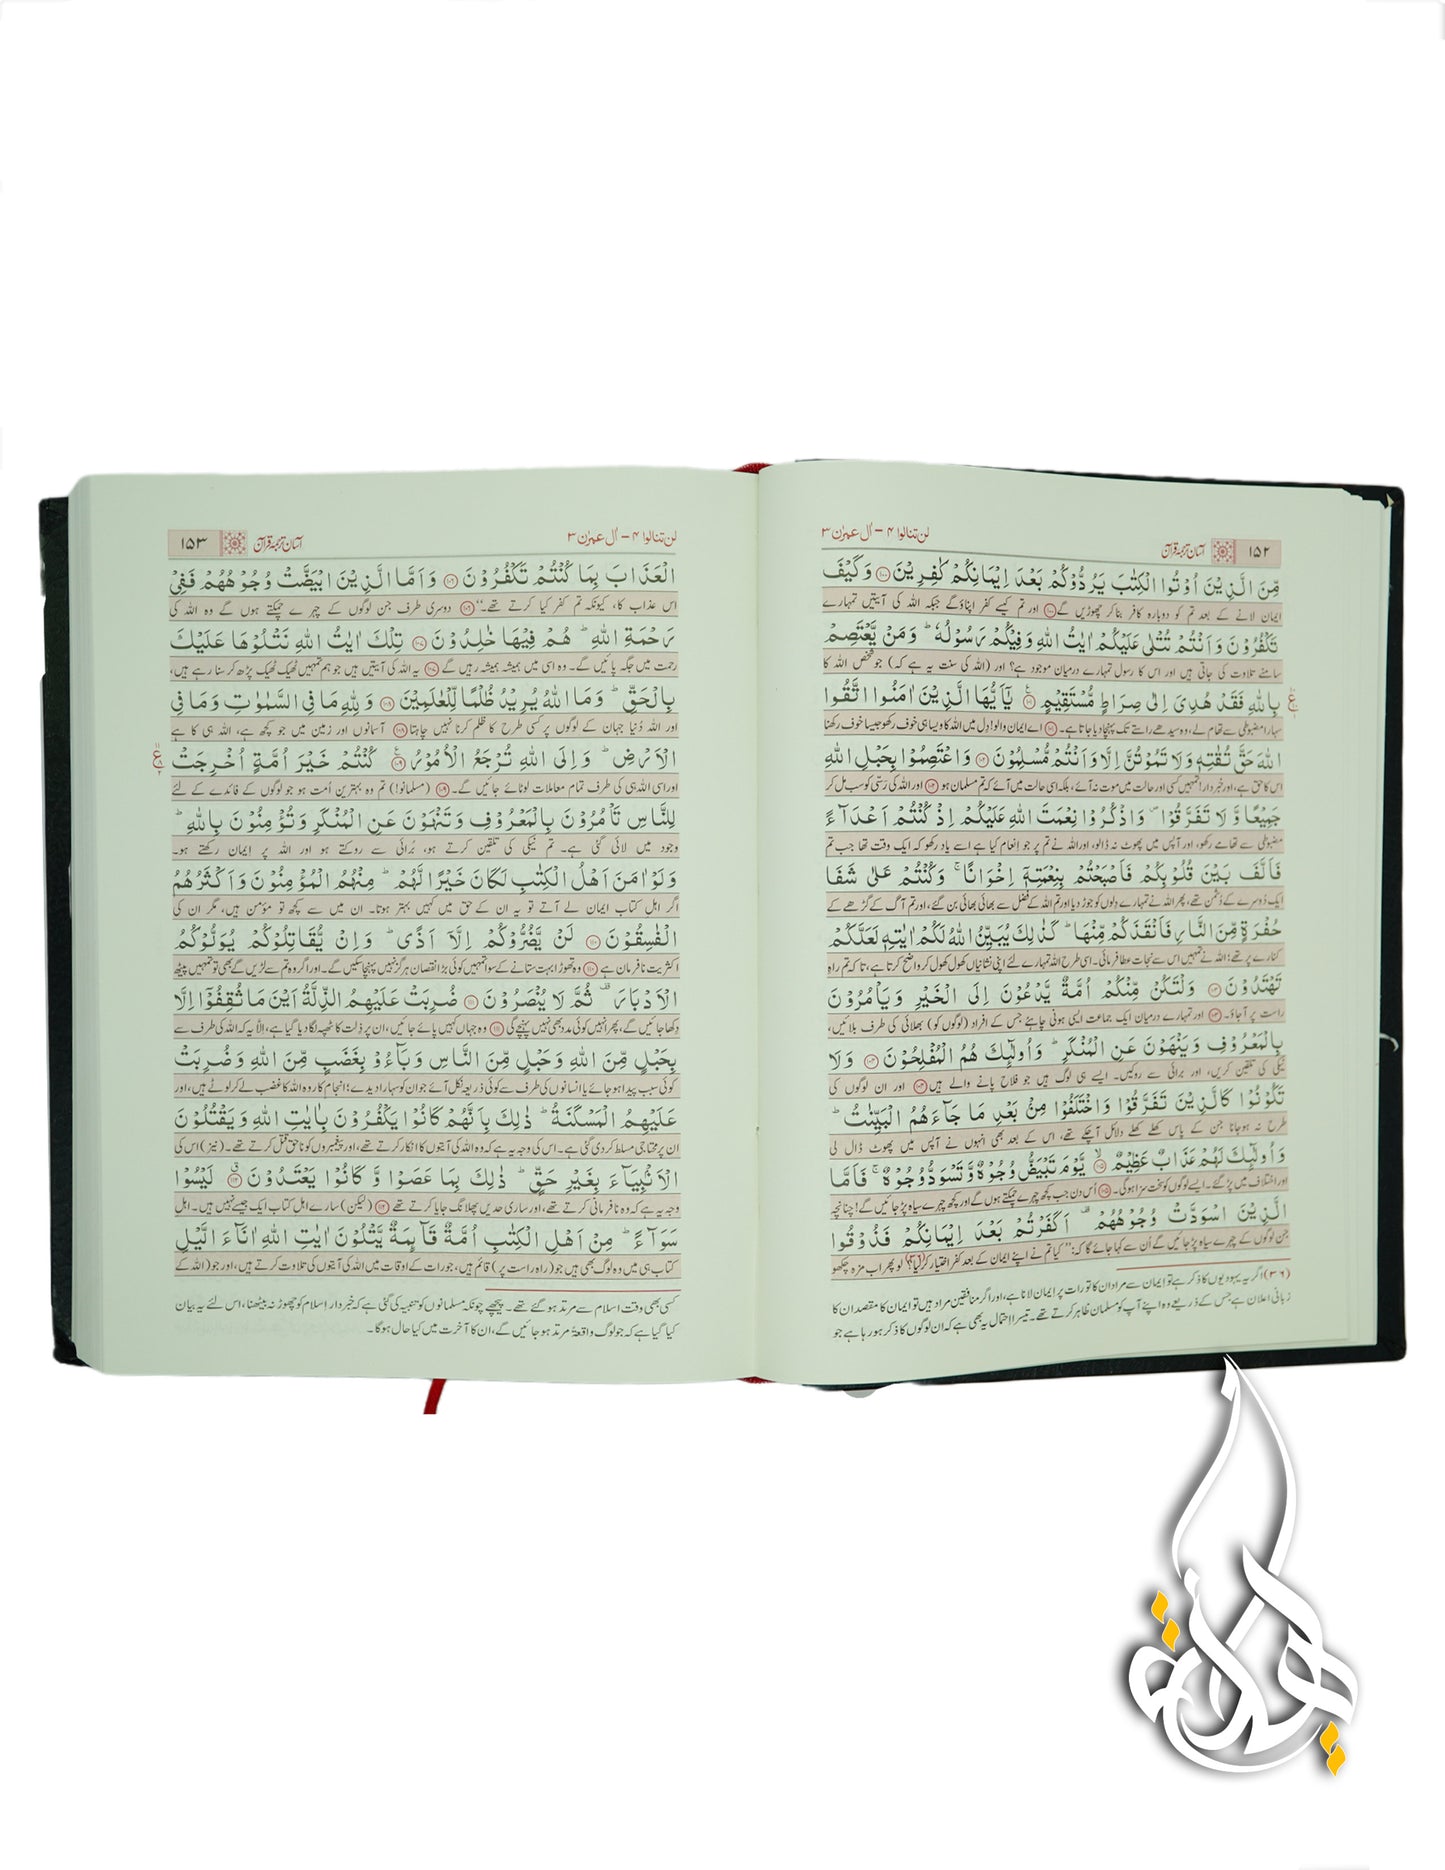 لن تنالوا ۴ – اٰل عمرٰن ۳
آسان ترجمۂ قرآن
۱۵۲
مِّنَ الَّذِيۡنَ اُوۡتُوا الۡكِتٰبَ يَرُدُّوۡكُمۡ بَعۡدَ اِيۡمَانِكُمۡ كٰفِرِيۡنَ ۱۰۰ وَكَيۡفَ
ایمان لانے کے بعد تم کو دوبارہ کافر بنا کر چھوڑیں گے ۱۰۰ اور تم کیسے کفر اپناؤ گے جبکہ اللہ کی آیتیں تمہارے
تَكۡفُرُوۡنَ وَاَنۡتُمۡ تُتۡلٰى عَلَيۡكُمۡ اٰيٰتُ اللّٰهِ وَفِيۡكُمۡ رَسُوۡلُهٗ ؕ وَمَنۡ يَّعۡتَصِمۡ
سامنے تلاوت کی جاتی ہیں اور اس کا رسول تمہارے درمیان موجود ہے؟ اور (اللہ کی سنت یہ ہے کہ) جو شخص اللہ کا
بِاللّٰهِ فَقَدۡ هُدِىَ اِلٰى صِرَاطٍ مُّسۡتَقِيۡمٍ ۱۰۱ يٰۤاَيُّهَا الَّذِيۡنَ اٰمَنُوا اتَّقُوا
سہارا مضبوطی سے تھام لے، وہ سیدھے راستے تک پہنچا دیا جاتا ہے۔ ۱۰۱ اے ایمان والو! دل میں اللہ کا ویسا ہی خوف رکھو جیسا خوف رکھنا
اللّٰهَ حَقَّ تُقٰتِهٖ وَلَا تَمُوۡتُنَّ اِلَّا وَاَنۡتُمۡ مُّسۡلِمُوۡنَ ۱۰۲ وَاعۡتَصِمُوۡا بِحَبۡلِ اللّٰهِ
اس کا حق ہے، اور خبردار! تمہیں کسی اور حالت میں موت نہ آئے، بلکہ اسی حالت میں آئے کہ تم مسلمان ہو ۱۰۲ اور اللہ کی رسّی کو سب مل کر
جَمِيۡعًا وَّلَا تَفَرَّقُوۡا ۪ وَاذۡكُرُوۡا نِعۡمَتَ اللّٰهِ عَلَيۡكُمۡ اِذۡ كُنۡتُمۡ اَعۡدَآءً
مضبوطی سے تھامے رکھو، اور آپس میں پھوٹ نہ ڈالو، اور اللہ نے تم پر جو اِنعام کیا ہے اسے یاد رکھو کہ ایک وقت تھا جب تم
فَاَلَّفَ بَيۡنَ قُلُوۡبِكُمۡ فَاَصۡبَحۡتُمۡ بِنِعۡمَتِهٖۤ اِخۡوَانًا ۚ وَكُنۡتُمۡ عَلٰى شَفَا
ایک دُوسرے کے دُشمن تھے، پھر اللہ نے تمہارے دلوں کو جوڑ دیا اور تم اللہ کے فضل سے بھائی بھائی بن گئے، اور تم آگ کے گڑھے کے
حُفۡرَةٍ مِّنَ النَّارِ فَاَنۡقَذَكُمۡ مِّنۡهَا ؕ كَذٰلِكَ يُبَيِّنُ اللّٰهُ لَكُمۡ اٰيٰتِهٖ لَعَلَّكُمۡ
کنارے پر تھے؛ اللہ نے تمہیں اس سے نجات عطا فرمائی۔ اسی طرح اللہ تمہارے لئے اپنی نشانیاں کھول کھول کر واضح کرتا ہے، تاکہ تم راہِ
تَهۡتَدُوۡنَ ۱۰۳ وَلۡتَكُنۡ مِّنۡكُمۡ اُمَّةٌ يَّدۡعُوۡنَ اِلَى الۡخَيۡرِ وَيَاۡمُرُوۡنَ
راست پر آجاؤ۔ ۱۰۳ اور تمہارے درمیان ایک جماعت ایسی ہونی چاہئے جس کے افراد (لوگوں کو) بھلائی کی طرف بلائیں،
بِالۡمَعۡرُوۡفِ وَيَنۡهَوۡنَ عَنِ الۡمُنۡكَرِ ؕ وَاُولٰٓئِكَ هُمُ الۡمُفۡلِحُوۡنَ ۱۰۴ وَلَا
نیکی کی تلقین کریں، اور برائی سے روکیں۔ ایسے ہی لوگ ہیں جو فلاح پانے والے ہیں ۱۰۴ اور ان لوگوں کی
تَكُوۡنُوۡا كَالَّذِيۡنَ تَفَرَّقُوۡا وَاخۡتَلَفُوۡا مِنۡۢ بَعۡدِ مَا جَآءَهُمُ الۡبَيِّنٰتُ ؕ
طرح نہ ہو جانا جن کے پاس کھلے کھلے دلائل آچکے تھے، اس کے بعد بھی انہوں نے آپس میں پھوٹ ڈال لی
وَاُولٰٓئِكَ لَهُمۡ عَذَابٌ عَظِيۡمٌ ۱۰۵ يَّوۡمَ تَبۡيَضُّ وُجُوۡهٌ وَّتَسۡوَدُّ وُجُوۡهٌ ۚ فَاَمَّا
اور اختلاف میں پڑ گئے۔ ایسے لوگوں کو سخت سزا ہوگی۔ ۱۰۵ اُس دن جب کچھ چہرے چمکتے ہوں گے اور کچھ چہرے سیاہ پڑ جائیں گے! چنانچہ
الَّذِيۡنَ اسۡوَدَّتۡ وُجُوۡهُهُمۡ ۟ اَكَفَرۡتُمۡ بَعۡدَ اِيۡمَانِكُمۡ فَذُوۡقُوا
جن لوگوں کے چہرے سیاہ پڑ جائیں گے اُن سے کہا جائے گا کہ: ”کیا تم نے اپنے ایمان کے بعد کفر اختیار کر لیا؟ (۳۶) لو پھر اب مزہ چکھو
(۳۶) اگر یہ یہودیوں کا ذکر ہے تو ایمان سے مراد ان کا تورات پر ایمان لانا ہے، اور اگر منافقین مراد ہیں تو ایمان کا مقصد ان کا
زبانی اعلان ہے جس کے ذریعے وہ اپنے آپ کو مسلمان ظاہر کرتے تھے۔ تیسرا احتمال یہ بھی ہے کہ ان لوگوں کا ذکر ہو رہا ہے جو
لن تنالوا ۴ – اٰل عمرٰن ۳
آسان ترجمۂ قرآن
۱۵۳
الۡعَذَابَ بِمَا كُنۡتُمۡ تَكۡفُرُوۡنَ ۱۰۶ وَاَمَّا الَّذِيۡنَ ابۡيَضَّتۡ وُجُوۡهُهُمۡ فَفِىۡ
اس عذاب کا، کیونکہ تم کفر کیا کرتے تھے۔“ ۱۰۶ دوسری طرف جن لوگوں کے چہرے چمکتے ہوں گے وہ اللہ کی
رَحۡمَةِ اللّٰهِ ؕ هُمۡ فِيۡهَا خٰلِدُوۡنَ ۱۰۷ تِلۡكَ اٰيٰتُ اللّٰهِ نَتۡلُوۡهَا عَلَيۡكَ
رحمت میں جگہ پائیں گے۔ وہ اسی میں ہمیشہ ہمیشہ رہیں گے ۱۰۷ یہ اللہ کی آیتیں ہیں جو ہم تمہیں ٹھیک ٹھیک پڑھ کر سنا رہے ہیں،
بِالۡحَقِّ ؕ وَمَا اللّٰهُ يُرِيۡدُ ظُلۡمًا لِّلۡعٰلَمِيۡنَ ۱۰۸ وَلِلّٰهِ مَا فِى السَّمٰوٰتِ وَمَا فِى
اور اللہ دُنیا جہان کے لوگوں پر کسی طرح کا ظلم کرنا نہیں چاہتا ۱۰۸ آسمانوں اور زمین میں جو کچھ ہے، اللہ ہی کا ہے
الۡاَرۡضِ ؕ وَاِلَى اللّٰهِ تُرۡجَعُ الۡاُمُوۡرُ ۱۰۹ كُنۡتُمۡ خَيۡرَ اُمَّةٍ اُخۡرِجَتۡ
اور اسی اللہ ہی کی طرف تمام معاملات لوٹائے جائیں گے۔ ۱۰۹ (مسلمانو!) تم وہ بہترین اُمت ہو جو لوگوں کے فائدے کے لئے
لِلنَّاسِ تَاۡمُرُوۡنَ بِالۡمَعۡرُوۡفِ وَتَنۡهَوۡنَ عَنِ الۡمُنۡكَرِ وَتُؤۡمِنُوۡنَ بِاللّٰهِ ؕ
وجود میں لائی گئی ہے۔ تم نیکی کی تلقین کرتے ہو، بُرائی سے روکتے ہو اور اللہ پر ایمان رکھتے ہو۔
وَلَوۡ اٰمَنَ اَهۡلُ الۡكِتٰبِ لَكَانَ خَيۡرًا لَّهُمۡ ؕ مِنۡهُمُ الۡمُؤۡمِنُوۡنَ وَاَكۡثَرُهُمُ
اگر اہلِ کتاب ایمان لے آتے تو یہ ان کے حق میں کہیں بہتر ہوتا۔ ان میں سے کچھ تو مؤمن ہیں، مگر ان کی
الۡفٰسِقُوۡنَ ۱۱۰ لَنۡ يَّضُرُّوۡكُمۡ اِلَّاۤ اَذًى ؕ وَاِنۡ يُّقَاتِلُوۡكُمۡ يُوَلُّوۡكُمُ
اکثریت نافرمان ہے ۱۱۰ وہ تھوڑا بہت ستانے کے سوا تمہیں کوئی بڑا نقصان ہرگز نہیں پہنچا سکیں گے۔ اور اگر وہ تم سے لڑیں گے بھی تو تمہیں پیٹھ
الۡاَدۡبَارَ ۟ ثُمَّ لَا يُنۡصَرُوۡنَ ۱۱۱ ضُرِبَتۡ عَلَيۡهِمُ الذِّلَّةُ اَيۡنَ مَا ثُقِفُوۡۤا اِلَّا
دِکھا جائیں گے، پھر انہیں کوئی مدد بھی نہیں پہنچے گی ۱۱۱ وہ جہاں کہیں پائے جائیں، ان پر ذِلت کا ٹھپہ لگا دیا گیا ہے، اِلَّا یہ کہ اللہ کی طرف سے
بِحَبۡلٍ مِّنَ اللّٰهِ وَحَبۡلٍ مِّنَ النَّاسِ وَبَآءُوۡ بِغَضَبٍ مِّنَ اللّٰهِ وَضُرِبَتۡ
کوئی سبب پیدا ہو جائے یا انسانوں کی طرف سے کوئی ذریعہ نکل آئے جو ان کو سہارا دیدے؛ انجام کار وہ اللہ کا غضب لے کر لوٹے ہیں، اور
عَلَيۡهِمُ الۡمَسۡكَنَةُ ؕ ذٰلِكَ بِاَنَّهُمۡ كَانُوۡا يَكۡفُرُوۡنَ بِاٰيٰتِ اللّٰهِ وَيَقۡتُلُوۡنَ
ان پر محتاجی مسلط کر دی گئی ہے۔ اس کی وجہ یہ ہے کہ وہ اللہ کی آیتوں کا انکار کرتے تھے، اور پیغمبروں کو ناحق قتل کرتے تھے۔ (نیز) اس کی
الۡاَنۡۢبِيَآءَ بِغَيۡرِ حَقٍّ ؕ ذٰلِكَ بِمَا عَصَوۡا وَّكَانُوۡا يَعۡتَدُوۡنَ ۱۱۲ لَيۡسُوۡا
وجہ یہ ہے کہ وہ نافرمانی کرتے تھے، اور ساری حدیں پھلانگ جایا کرتے تھے ۱۱۲ (لیکن) سارے اہلِ کتاب ایک جیسے نہیں ہیں۔ اہلِ
سَوَآءً ؕ مِنۡ اَهۡلِ الۡكِتٰبِ اُمَّةٌ قَآئِمَةٌ يَّتۡلُوۡنَ اٰيٰتِ اللّٰهِ اٰنَآءَ الَّيۡلِ
کتاب ہی میں وہ لوگ بھی ہیں جو (راہِ راست پر) قائم ہیں، جو رات کے اوقات میں اللہ کی آیتوں کی تلاوت کرتے ہیں، اور جو (اللہ کے
کسی بھی وقت اسلام سے مرتد ہو گئے تھے۔ پیچھے چونکہ مسلمانوں کو تنبیہ کی گئی ہے کہ خبردار اِسلام کو چھوڑ نہ بیٹھنا، اس لئے یہ بیان
کیا گیا ہے کہ جو لوگ واقعۃً مرتد ہو جائیں گے، ان کا آخرت میں کیا حال ہوگا۔